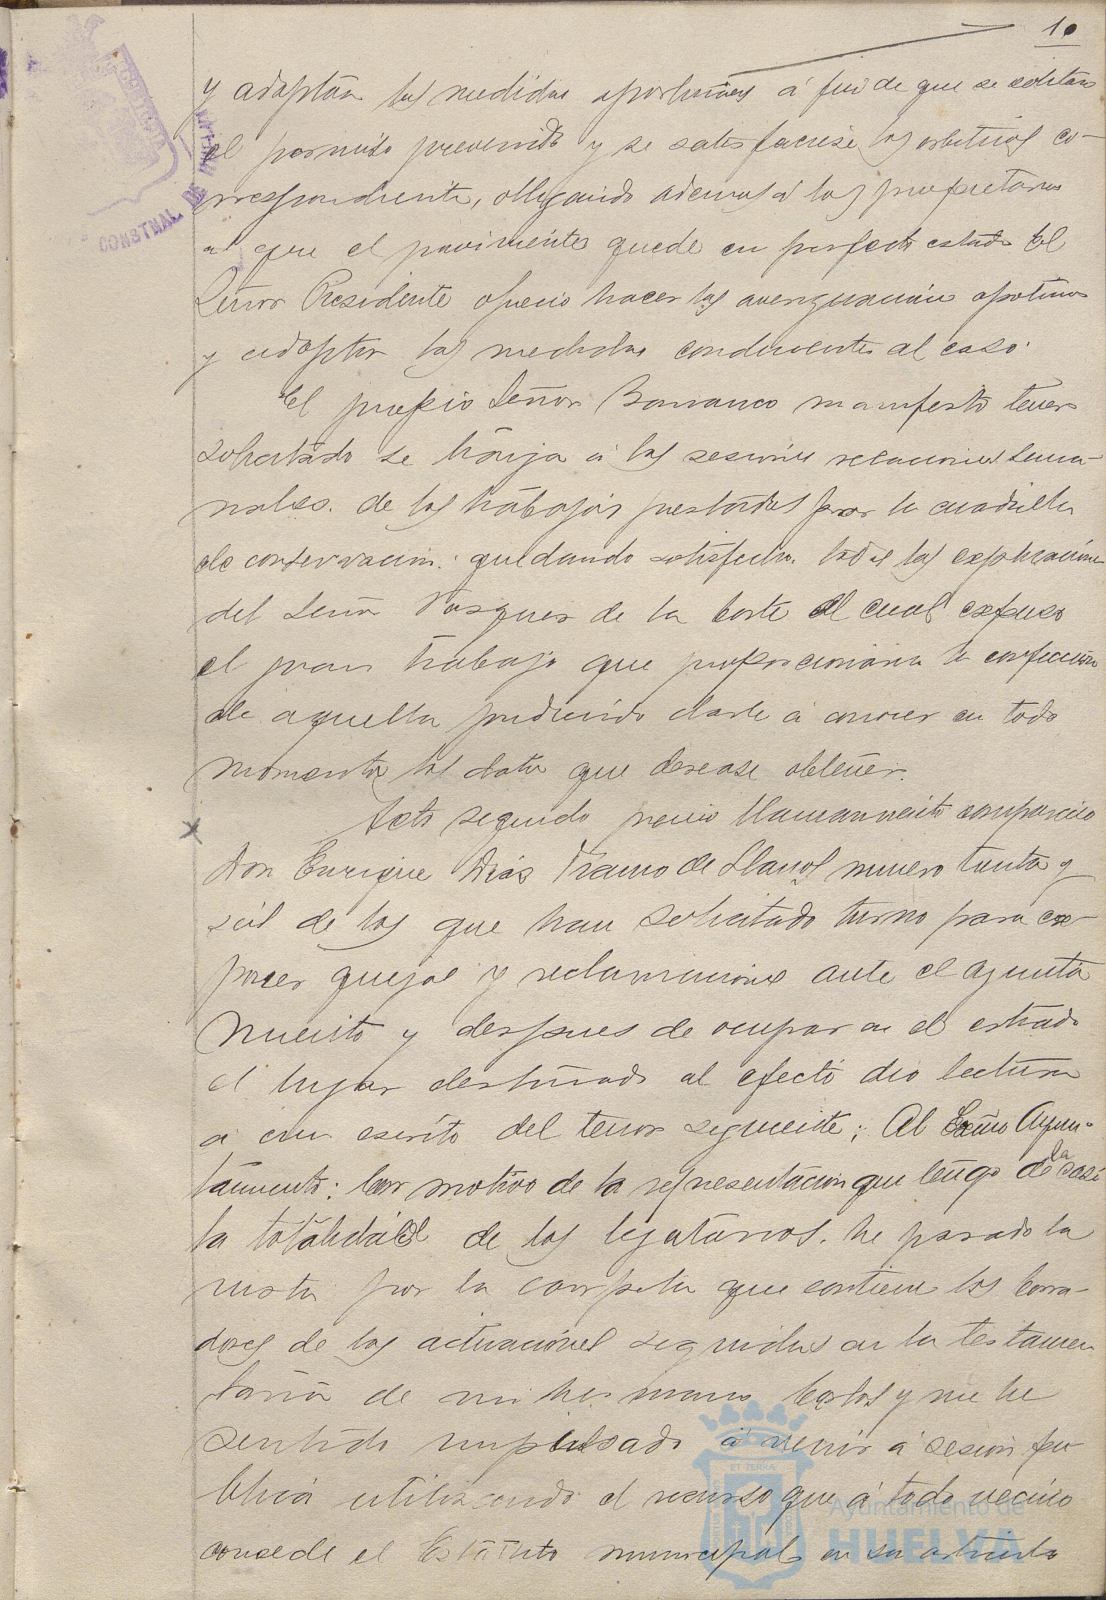 10
y adoptara las medidas oportunas á fin de que se solitara
el permiso prevenido y se satisfaciese los arbitrios co-
rrespondiente, obligando ademas á los propietarios
a que el pavimento quede en perfecto estado. El
Señor Presidente ofrecio hacer las averiguaciones oportunas
y adoptar las medidas conducentes al caso.
El propio Señor Barranco manifesto tener
solicitado se traiga á las sesiones relaciones sema-
nales de los trabajos prestados por la cuadrilla
de conservacion: quedando satisfecho las explicaciones
del Señor Vasquez de la Corte el cual expuso
el gran trabajo que proporcionaria la confeccion
de aquella pudiendo darle á conocer en todo
momento los datos que desease obtener.
Acto seguido previo llamamiento comparecio
Don Enrique Dias Franco de Llanos numero treinta y
seis de los que han solicitado turno para ex-
poner quejas y reclamaciones ante el Ayunta
miento y despues de ocupar en el estrado
el lugar destinado al efecto dio lectura
a un escrito del tenor siguiente: Al Excmo Ayun-
tamiento: Con motivo de la representacion que tengo de la casi
la totalidad de los legatarios, he pasado la
vista por la carpeta que contiene los borra-
dores de las actuaciones seguidas en la testamen
taria de mi hermano Carlos y me he
sentido impulsado á venir á sesion pu-
blica utilizando el recurso que á todo vecino
concede el Estatuto municipal en su articulo
CONSTNAL DE HUELVA
Ayuntamiento de
HUELVA